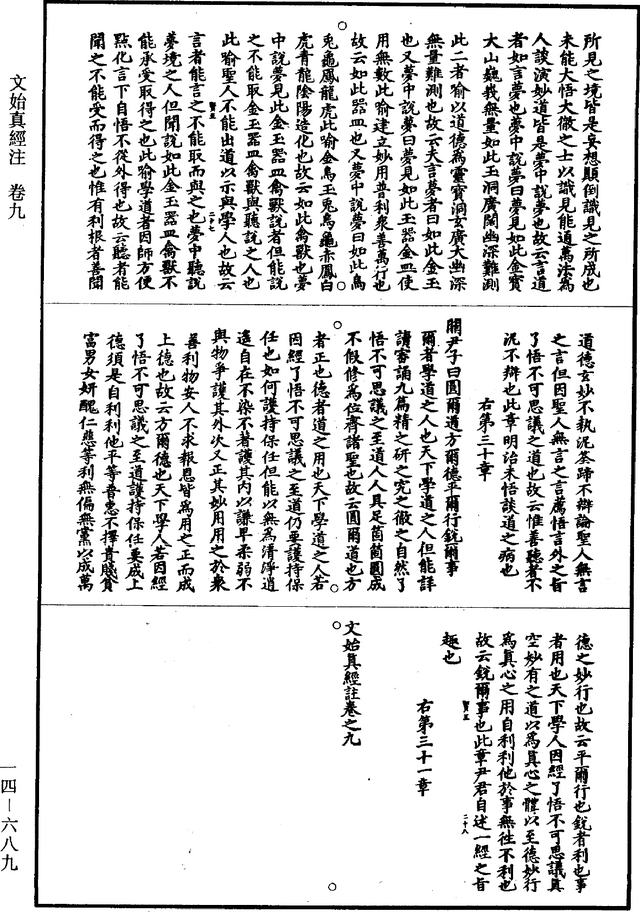 所見之境皆是妄想顛倒識見之所成也
未能大悟大徹之士以識見能通萬法為
人談演妙道皆是夢中說夢也故云言道
者如言夢也夢中說夢曰夢見如此金寶
大山巍我無量如此玉洞廣闊幽深難測
此二者喻以道德為靈寶洞玄廣大幽深
無量難測也故云夫言夢者曰如此金玉
也又夢中說夢曰夢見如此玉器金皿使
用無數此喻建立妙用普利衆善萬行也
故云如此器皿也又夢中說夢曰如此烏
兎龜鳳龍虎此喻金烏玉兎烏龜赤鳳白
虎青龍陰陽造化也故云如此禽獸也夢
中說夢見此金玉器皿禽獸說者但能說
之不能取金玉器皿禽獸與聽說之人也
此喻聖人不能出道以示與學人也故云
賢五 二十七
言者能言之不能取而與之也夢中聽說
夢境之人但聞說如此金玉器皿禽獸不
能承受取得之也此喻學道者因師方便
點化言下自悟不從外得也故云聽者能
聞之不能受而得之也惟有利根者善聞
道德玄妙不執泥筌蹄不辯論聖人無言
之言但因聖人無言之言薦悟言外之旨
了悟不可思議之道也故云惟善聽者不
泥不辯也此章明诒未悟談道之病也
右第三十章
關尹子曰圓爾道方爾德平爾行銳爾事
爾者學道之人也天下學道之人但能詳
讀審誦九篇精之研之究之徹之自然了
悟不可思議之至道人人具足箇箇圓成
不假修為位齊諸聖也故云圓爾道也方
者正也德者道之用也天下學道之人若
因經了悟不可思議之至道仍要護持保
任也如何護持保任但能以無為清淨逍
遙自在不染不著護其內以謙卑柔弱不
與物爭護其外次又正其妙用用之於衆
善利物安人不求報恩皆為用之正而成
上德也故云方爾德也天下學人若因經
了悟不可思議之至道護持保任要成上
德須是自利利他平等普惠不擇貴賤貧
富男女妍醜仁慈等利無偏無黨以成萬
德之妙行也故云平爾行也銳者利也事
者用也天下學人因經了悟不可思議真
空妙有之道以為真心之體以至德妙行
為真心之用自利利他於事無往不利也
故云銳爾事也此章尹君自述一經之旨
賢五 二十八
趣也
右第三十一章
文始真經註卷之九
文始真經注 卷九
一四－六八九